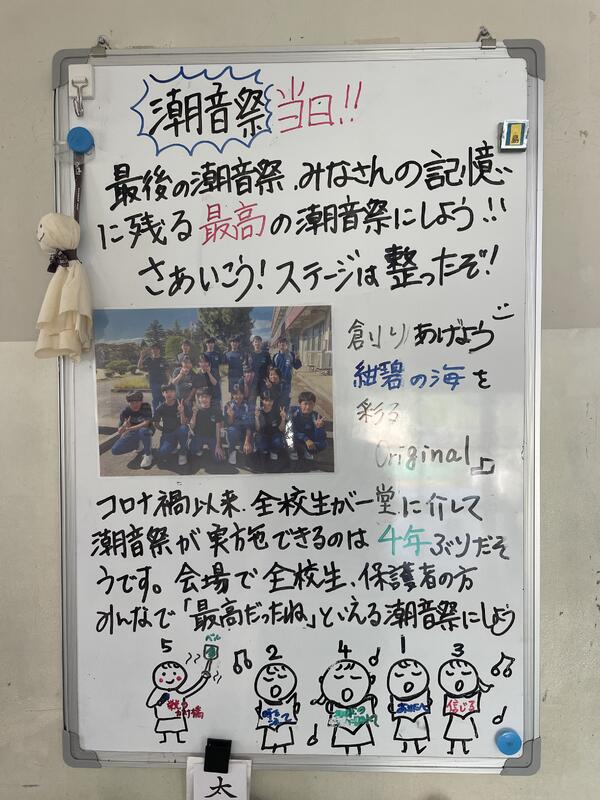 潮音祭 当日!!
最後の潮音祭、みなさんの記憶
に残る最高の潮音祭にしよう!!
さあいこう!ステージは整ったぞ!
創りあげよう
紺碧の海を
彩る
Original♪
コロナ禍以来、全校生が一堂に介して
潮音祭が実施できるのは4年ぶりだそ
うです。会場で全校生、保護者の方
みんなで「最高だったね」といえる潮音祭にしよう
5 ベル 2 4 1 3
信じる
太